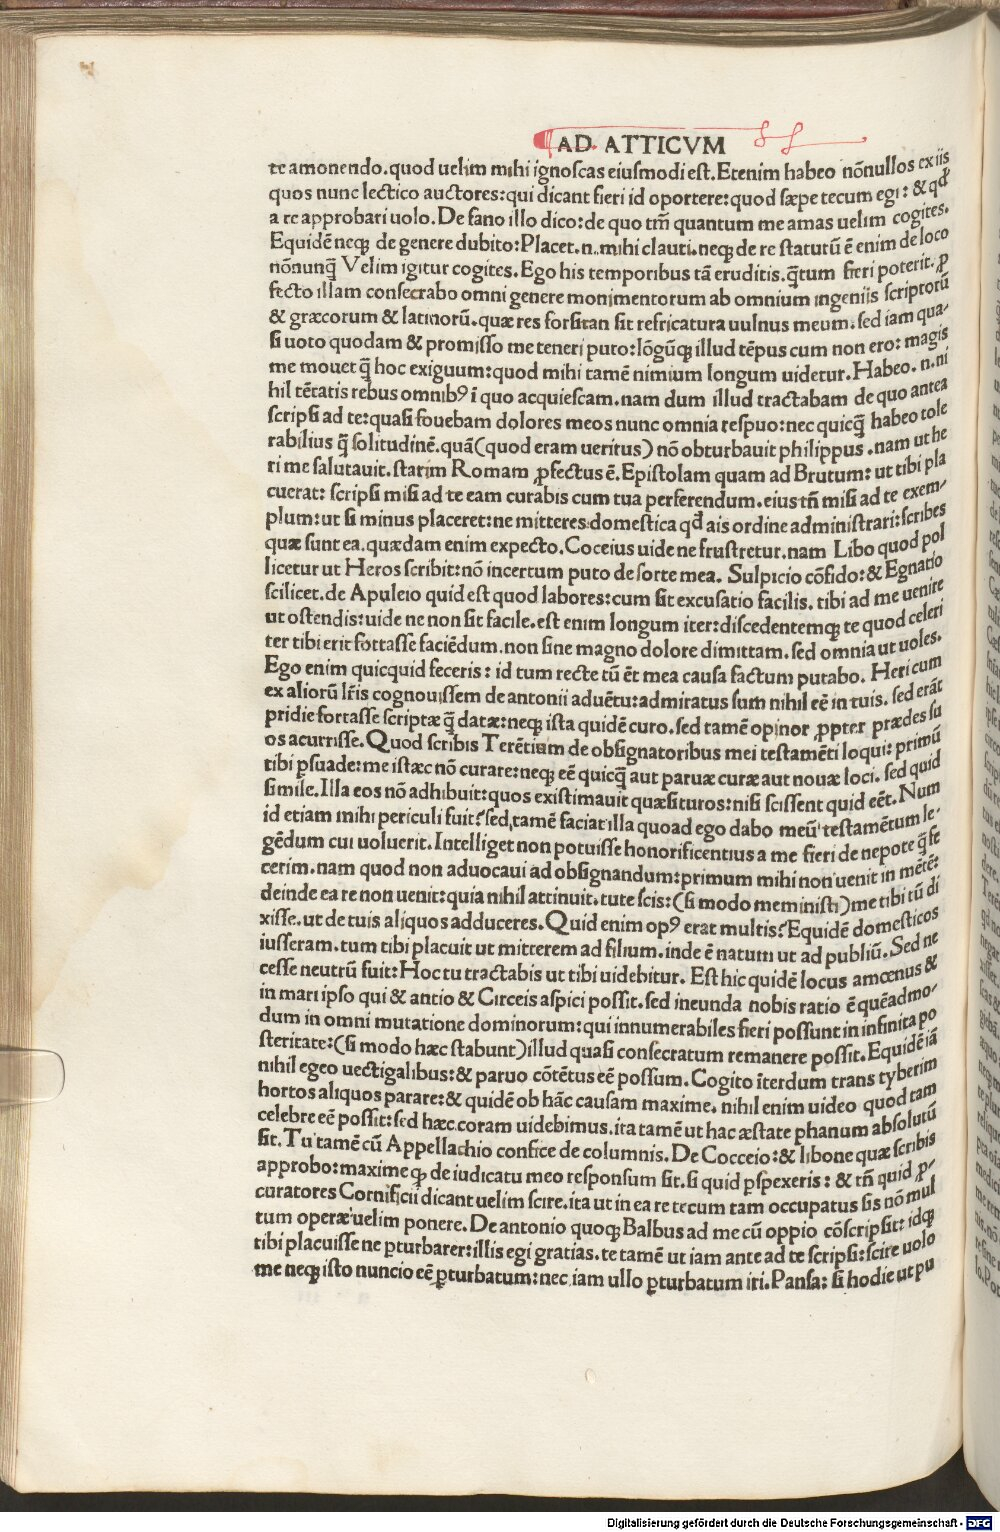 AD. ATTICVM
te amonendo.quod uelim mihi ignoscas eiusmodi est.Etenim habeo nōnullos ex iis
quos nunc lectico auctores:qui dicant fieri id oportere:quod sæpe tecum egi:& qđ
a te approbari uolo.De fano illo dico:de quo tm̄ quantum me amas uelim cogites.
Equidē neqꝫ de genere dubito:Placet.n.mihi clauti.neqꝫ de re statutū ē enim de loco
nōnunq̄ Velim igitur cogites.Ego his temporibus tā eruditis.q̄tum fieri poterit.ꝓ
fecto illam consecrabo omni genere monimentorum ab omnium ingeniis scriptorū
& græcorum & latinorū.quæ res forsitan sit refricatura uulnus meum.sed iam qua-
si uoto quodam & promisso me teneri puto:lōgūqꝫ illud tēpus cum non ero:magis
me mouet q̄ hoc exiguum:quod mihi tamē nimium longum uidetur.Habeo.n.ni
hil tētatis rebus omnibꝰ ī quo acquiescam.nam dum illud tractabam de quo antea
scripsi ad te:quasi fouebam dolores meos nunc omnia respuo:nec quicq̄ habeo tole
rabilius q̄ solitudinē.quā(quod eram ueritus) nō obturbauit philippus.nam ut he
ri me salutauit.statim Romam ꝓfectus ē.Epistolam quam ad Brutum:ut tibi pla
cuerat:scripsi misi ad te eam curabis cum tua perferendum.eius tn̄ misi ad te exem-
plum:ut si minus placeret:ne mitteres domestica qđ ais ordine administrari:scribes
quæ sunt ea.quædam enim expecto.Coceius uide ne frustretur.nam Libo quod pol
licetur ut Heros scribit:nō incertum puto de sorte mea. Sulpicio cōfido:& Egnatio
scilicet.de Apuleio quid est quod labores:cum sit excusatio facilis.tibi ad me uenire
ut ostendis:uide ne non sit facile.est enim longum iter:discedentemqꝫ te quod celeri
ter tibi erit fortasse faciēdum.non sine magno dolore dimittam.sed omnia ut uoles.
Ego enim quicquid feceris:id tum recte tū ēt mea causa factum putabo. Heri cum
ex aliorū lr̄is cognouissem de antonii aduētu:admiratus sum nihil eē in tuis.sed erāt
pridie fortasse scriptæ q̄ datæ:neqꝫ ista quidē curo.sed tamē opinor ꝓpter prædes su
os acurrisse.Quod scribis Terētium de obsignatoribus mei testamēti loqui:primū
tibi ꝑsuade:me istæc nō curare:neqꝫ eē quicq̄ aut paruæ curæ aut nouæ loci.sed quid
simile.Illa eos nō adhibuit:quos existimauit quæsituros:nisi scissent quid eēt.Num
id etiam mihi periculi fuit?sed tamē faciat illa quoad ego dabo meū testamētum le-
gēdum cui uoluerit.Intelliget non potuisse honorificentius a me fieri de nepote q̄ fe
cerim.nam quod non aduocaui ad obsignandum:primum mihi non uenit in mētē:
deinde ea re non uenit:quia nihil attinuit.tute scis:(si modo meministi)me tibi tū di
xisse.ut de tuis aliquos adduceres.Quid enim opꝰ erat multis?Equidē domesticos
iusseram.tum tibi placuit ut mitterem ad filium.inde ē natum ut ad publiū.Sed ne
cesse neutrū fuit:Hoc tu tractabis ut tibi uidebitur. Est hic quidē locus amœnus &
in mari ipso qui & antio & Circeis aspici possit.sed ineunda nobis ratio ē quēadmo-
dum in omni mutatione dominorum:qui innumerabiles fieri possunt in infinita po
steritate:(si modo hæc stabunt)illud quasi consecratum remanere possit.Equidē iā
nihil egeo uectigalibus:& paruo cōtētus eē possum.Cogito īterdum trans tyberim
hortos aliquos parare:& quidē ob hāc causam maxime.nihil enim uideo quod tam
celebre eē possit:sed hæc coram uidebimus.ita tamē ut hac æstate phanum absolutū
sit.Tu tamē cū Appellachio confice de columnis.De Cocceio:& libone quæ scribis
approbo:maxime qꝫ de iudicatu meo responsum sit.si quid ꝑspexeris:& tn̄ quid ꝓ-
curatores Cornificii dicant uelim scire.ita ut in ea re tecum tam occupatus sis nō mul
tum operæ uelim ponere.De antonio quoqꝫ Balbus ad me cū oppio cōscripsit:idqꝫ
tibi placuisse ne ꝑturbarer:illis egi gratias.te tamē ut iam ante ad te scripsi:scire uolo
me neqꝫ isto nuncio eē ꝑturbatum:nec iam ullo ꝑturbatum iri.Pansa:si hodie ut pu
Digitalisierung gefördert durch die Deutsche Forschungsgemeinschaft - DFG